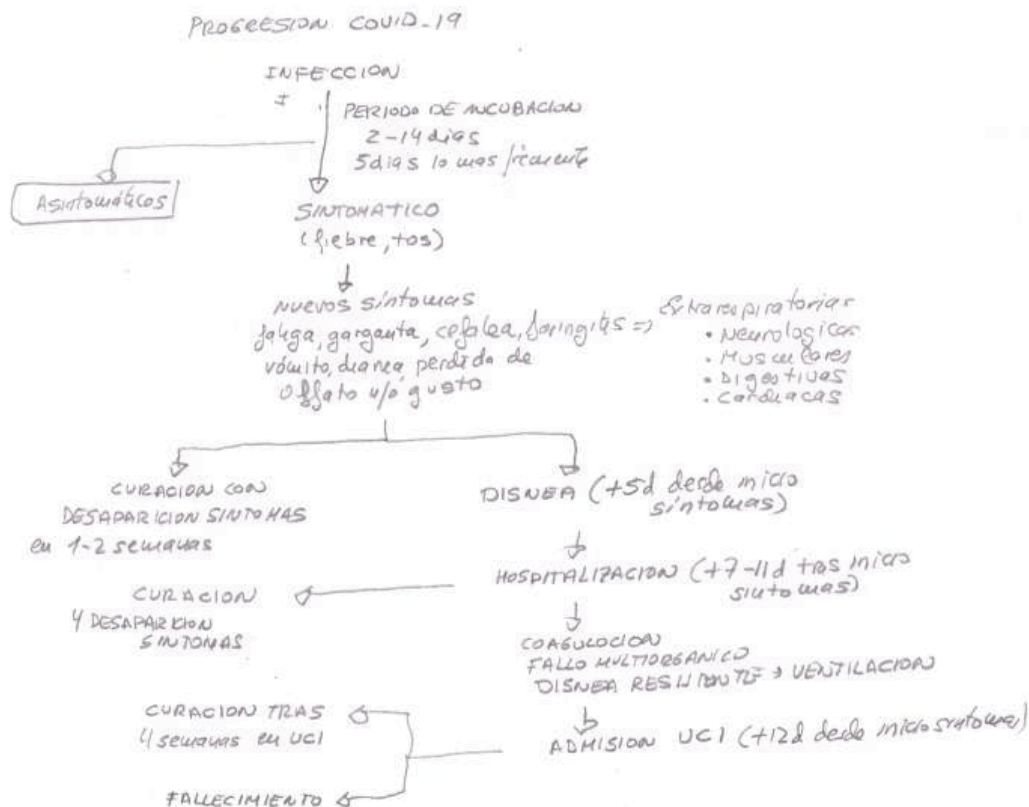 PROGRESION COVID-19
INFECCION
PERIODO DE INCUBACION
2-14 dias
5 dias lo mas frecuente
Asintomáticos
SINTOMATICO
(fiebre, tos)
NUEVOS síntomas
fatiga, garganta, cefalea, faringitis =>
vómito, diarrea perdida de
olfato y/o gusto
Extrarespiratorias
• Neurologicas
• Musculares
• Digestivas
• Cardiacas
CURACION CON
DESAPARICION SINTOMAS
en 1-2 semanas
DISNEA (+5d desde inicio
síntomas)
HOSPITALIZACION (+7-11d tras inicio
síntomas)
CURACION
Y DESAPARICION
SINTOMAS
COAGULOCION
FALLO MULTIORGANICO
DISNEA → VENTILACION
ADMISION UCI (+12d desde inicio síntomas)
CURACION TRAS
4 semanas en UCI
FALLECIMIENTO